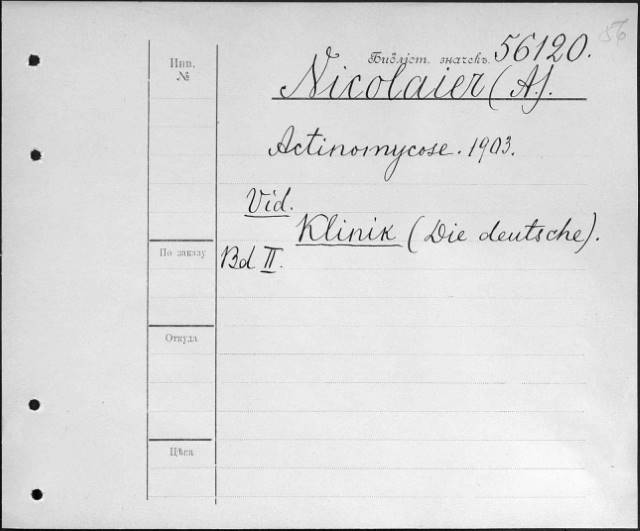 56
Инв.
№
Библіот. значекъ. 56120.
Nicolaier (A.).
Actinomycose. 1903.
Vid.
Klinik (Die deutsche).
По заказу
Bd II.
Откуда
Цѣна